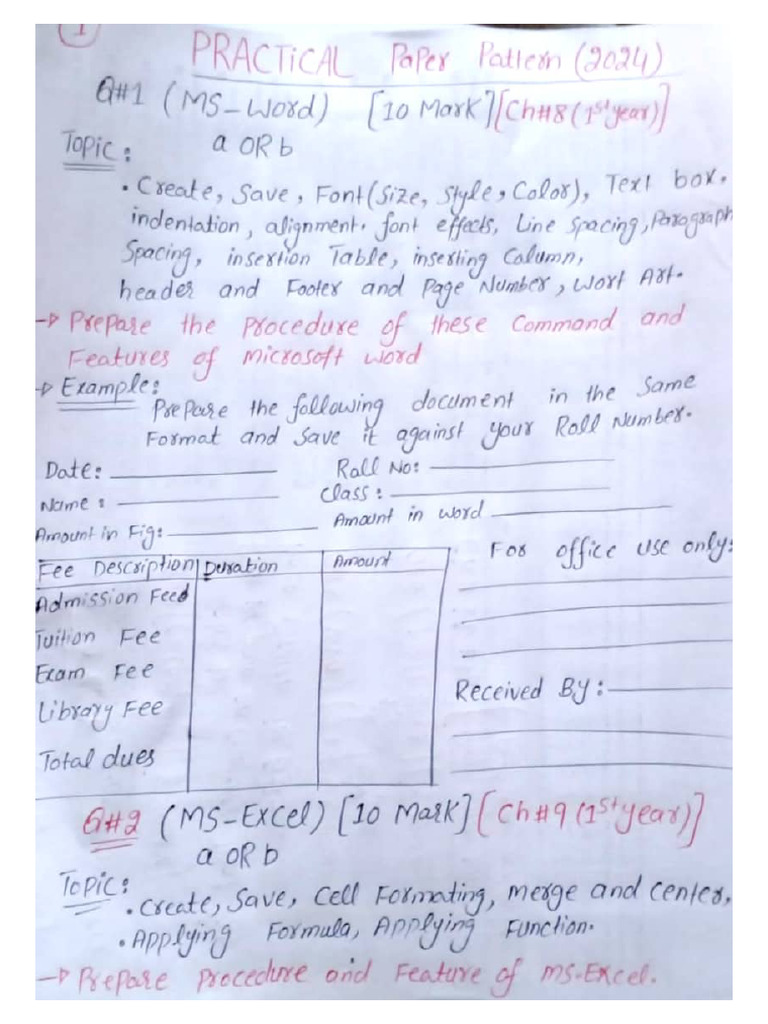 1
PRACTiCAL Paper Pattern (2024)
Q#1 (MS-Word) [10 Mark] [Ch#8 (1st year)]
a OR b
Topic:
• Create, Save, Font (Size, Style, Color), Text box.
indentation, alignment. font effects, Line Spacing, Paragraph
Spacing, insertion Table, inserting Column,
header and Footer and Page Number, Wort Art.
→ Prepare the Procedure of these Command and
Features of microsoft word
→ Example:
Prepare the following document in the Same
Format and Save it against your Roll Number.
Date: Roll No:
Name: Class:
Amount in Fig: Amount in word
Fee Description Duration Amount For office use only:
Admission Feed
Tuition Fee
Exam Fee
Received By:
Library Fee
Total dues
Q#2 (MS-Excel) [10 Mark] [Ch#9 (1st year)]
a OR b
Topic:
• Create, Save, Cell Formating, merge and center,
• Applying Formula, Applying Function.
→ Prepare Procedure and Feature of MS-Excel.